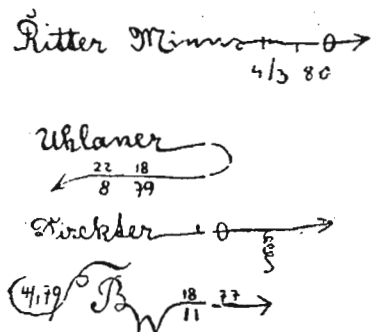 Ritter Minna
4/3 80
Uhlaner
22 18
8 79
Kirckser
4/,79 B 18 77
11